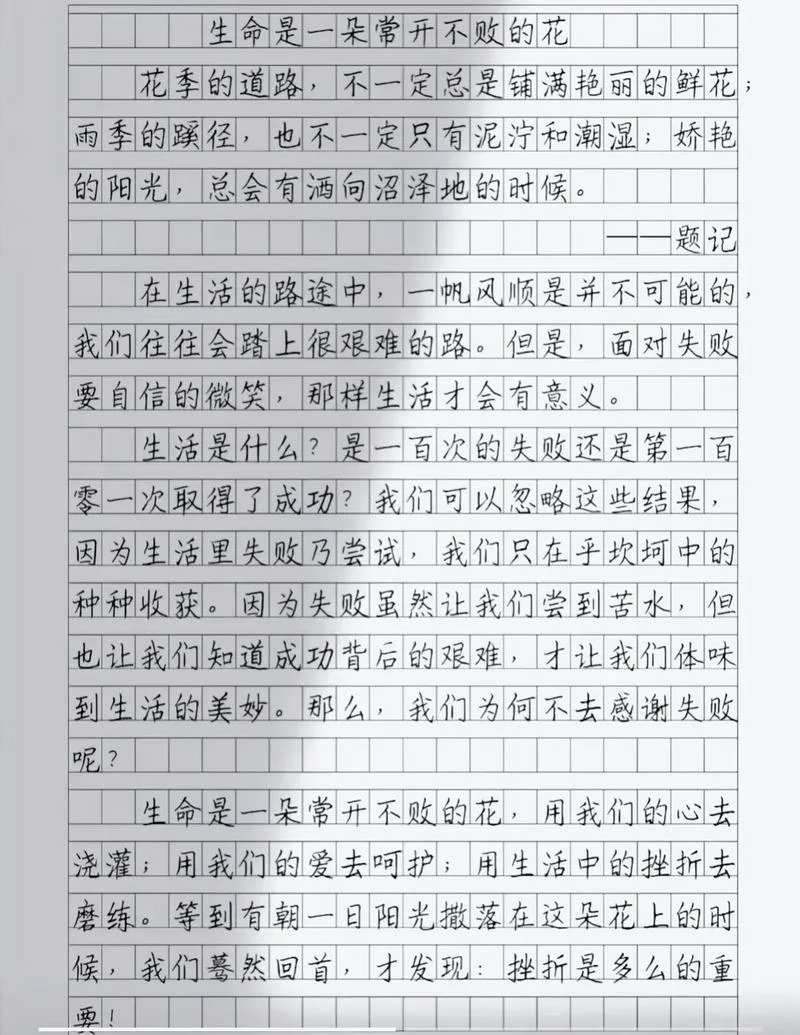 生命是一朵常开不败的花
花季的道路，不一定总是铺满艳丽的鲜花；
雨季的蹊径，也不一定只有泥泞和潮湿；娇艳
的阳光，总会有洒向沼泽地的时候。
——题记
在生活的路途中，一帆风顺是并不可能的，
我们往往会踏上很艰难的路。但是，面对失败
要自信的微笑，那样生活才会有意义。
生活是什么？是一百次的失败还是第一百
零一次取得了成功？我们可以忽略这些结果，
因为生活里失败乃尝试，我们只在乎坎坷中的
种种收获。因为失败虽然让我们尝到苦水，但
也让我们知道成功背后的艰难，才让我们体味
到生活的美妙。那么，我们为何不去感谢失败
呢？
生命是一朵常开不败的花，用我们的心去
浇灌；用我们的爱去呵护；用生活中的挫折去
磨练。等到有朝一日阳光撒落在这朵花上的时
候，我们蓦然回首，才发现：挫折是多么的重
要！